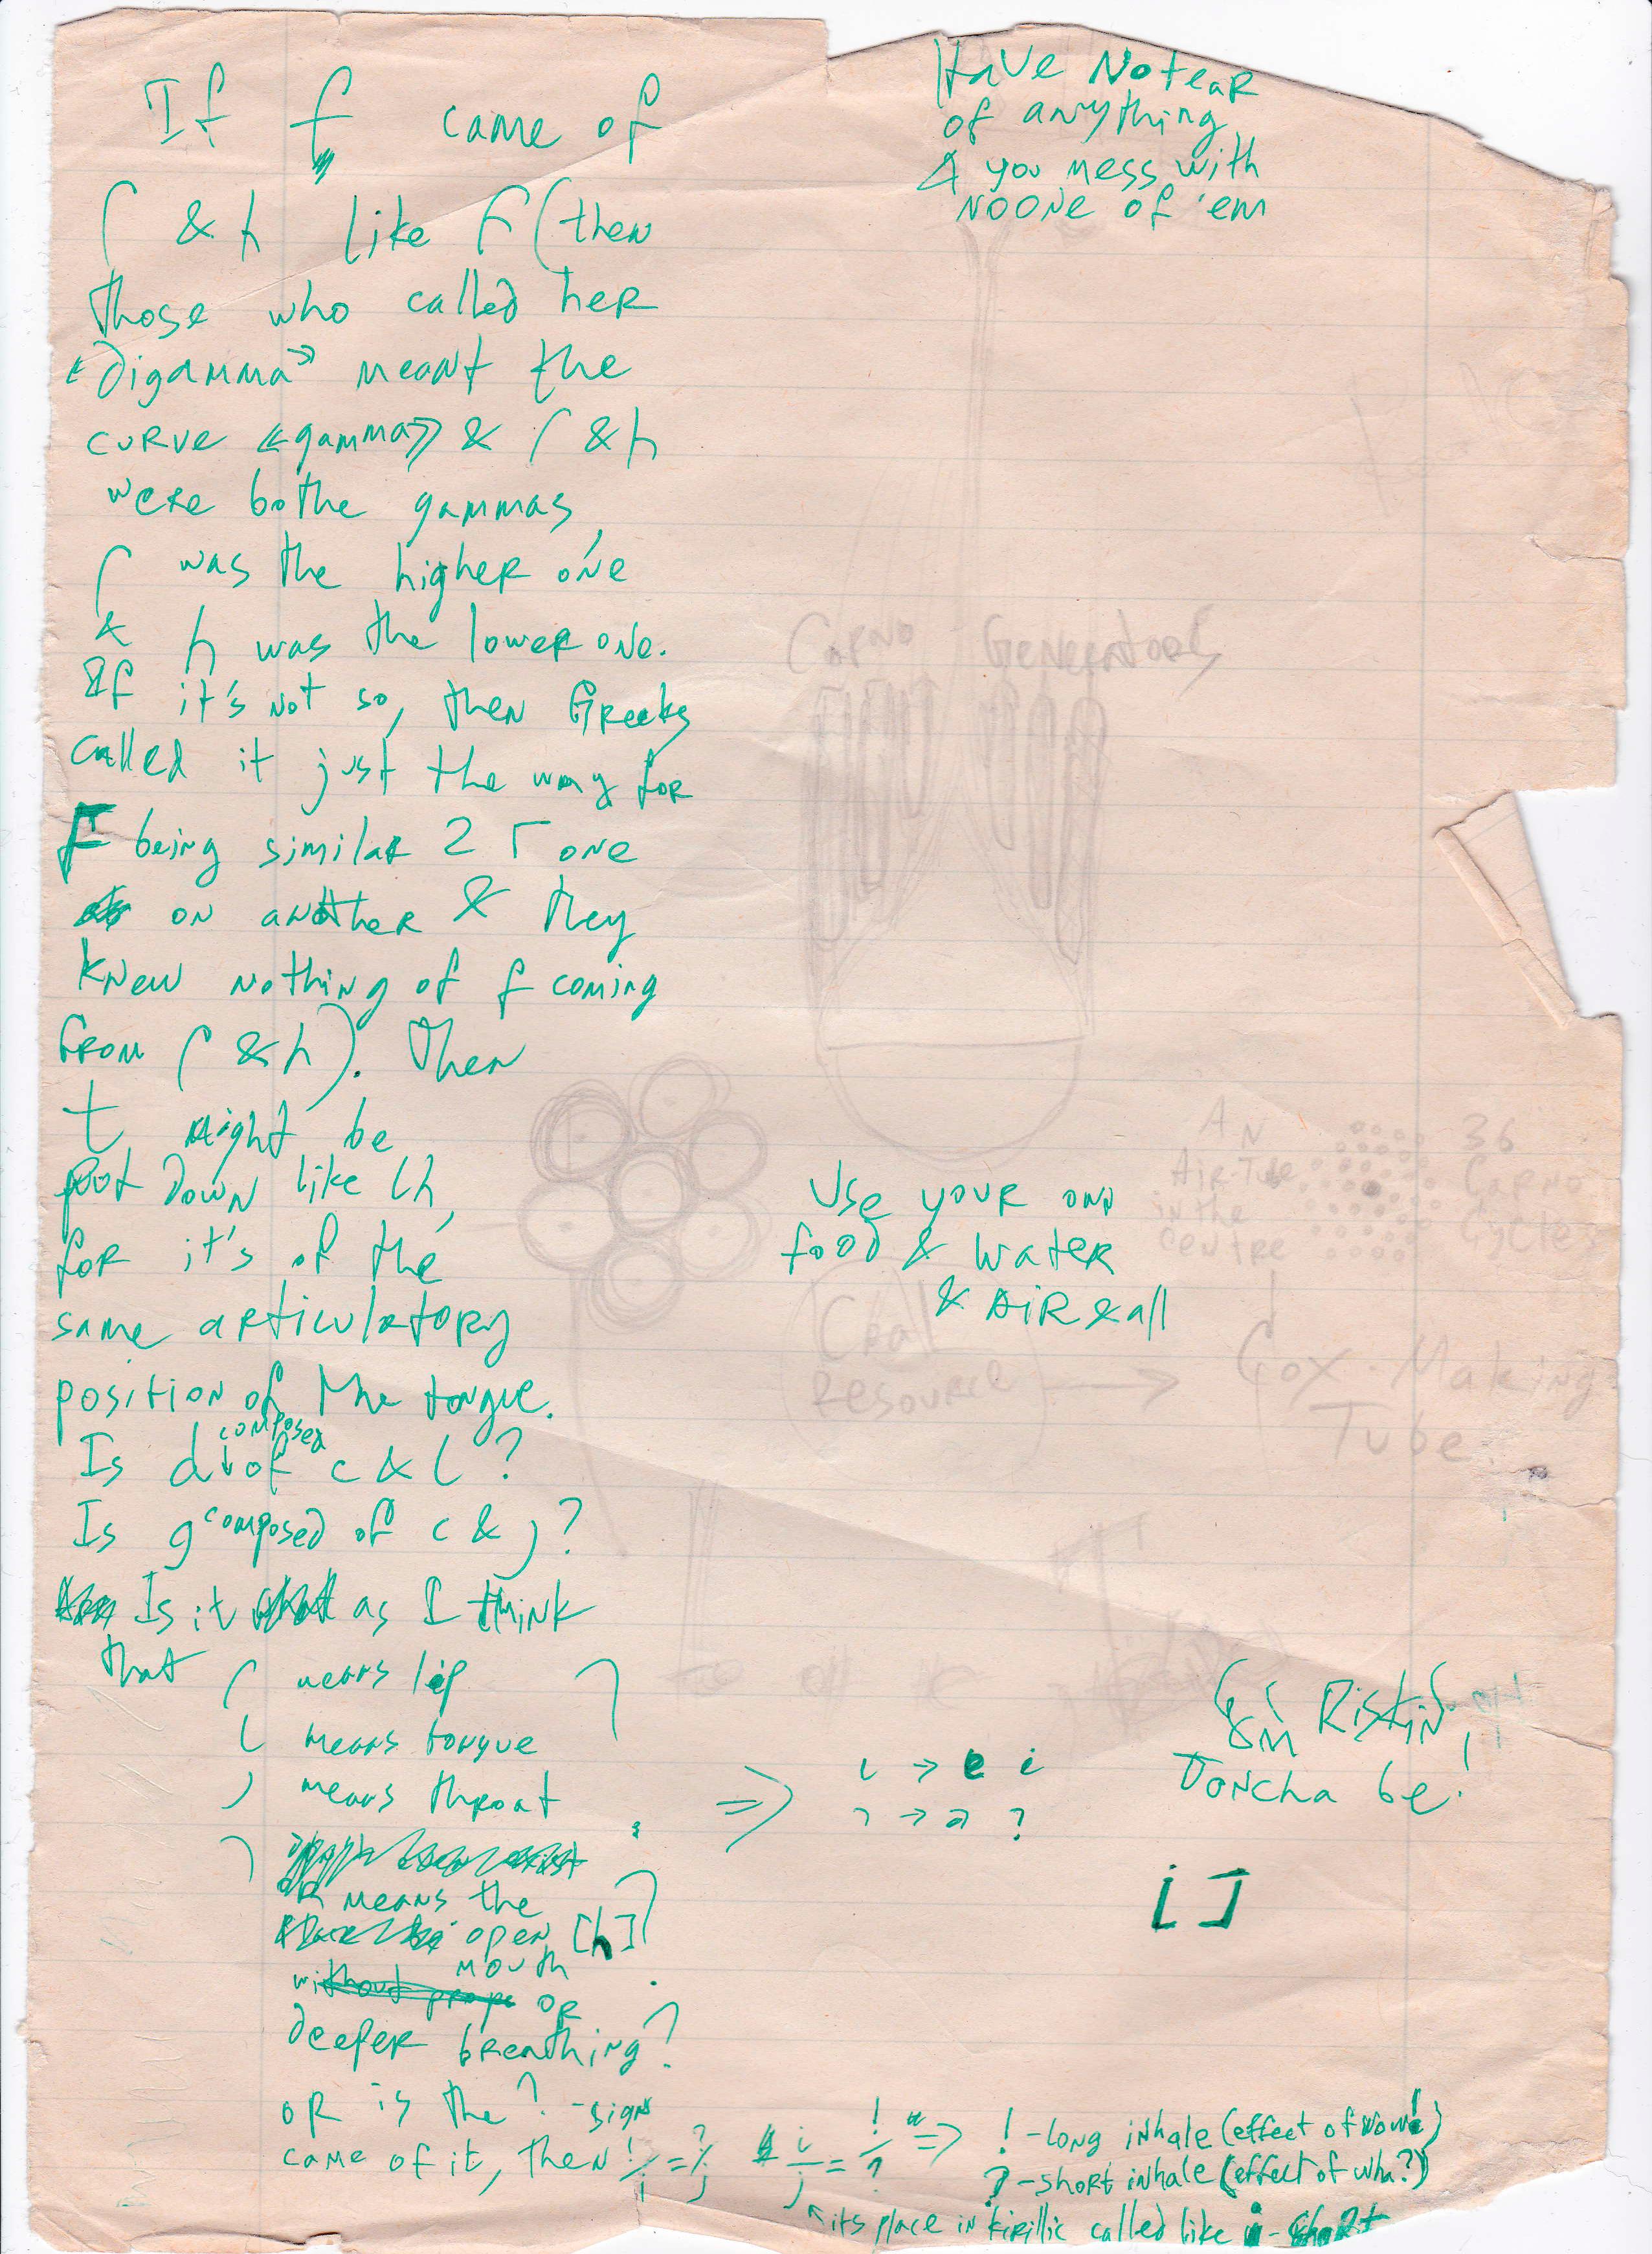 If f came of
ſ & h like f (then
those who called her
«digamma» meant the
curve «gamma» & ſ & h
were bothe gammas,
ſ was the higher one
& h was the lower one.
If it's not so, then Greeks
called it just the way for
F being similar 2 Γ one
on another & they
knew nothing of f coming
from ſ & h). Then
t might be
put down like ɩh,
for it's of the
same articulatory
position of the tongue.
Is d composed of c & ɩ?
Is g composed of c & j?
Is it as I think
that ſ means lip
ɩ means tongue
) means throat
or means the
open [h]
mouth
or
deeper breathing?
or is the ? -sign
came of it, then !/i = ?/j & i/j = !/? "=>
! -long inhale (effect of wow!)
? -short inhale (effect of wha?)
its place in kirillic called like i-short
ɩ → e i
ɂ → a ?
Have No fear
of anything
& you mess with
NOONE of 'em
Carno Generators
Use your own
food & water
& AiR & all
AN
Air-Tube
in the
Centre
36
Carno
Cycles
Coal
Resource
→ Cox-Making
Tube
Riskin,
Doncha be!
[ ]